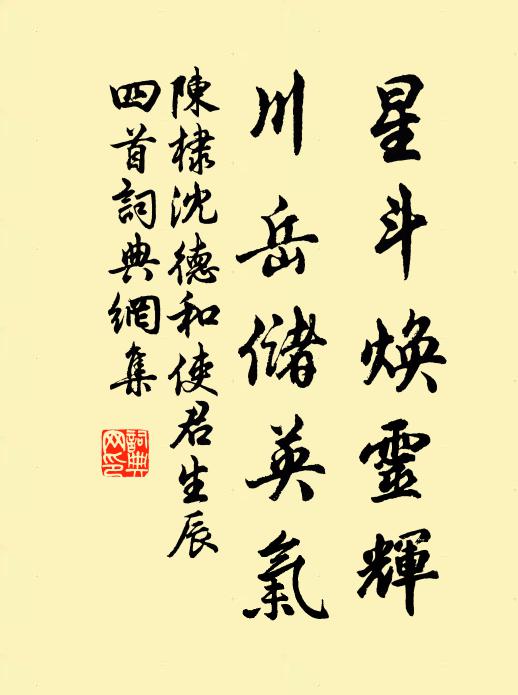 星斗煥靈輝
川岳儲英氣
陳棣沈德和使君生辰
四首詞典網集
詞典
网印